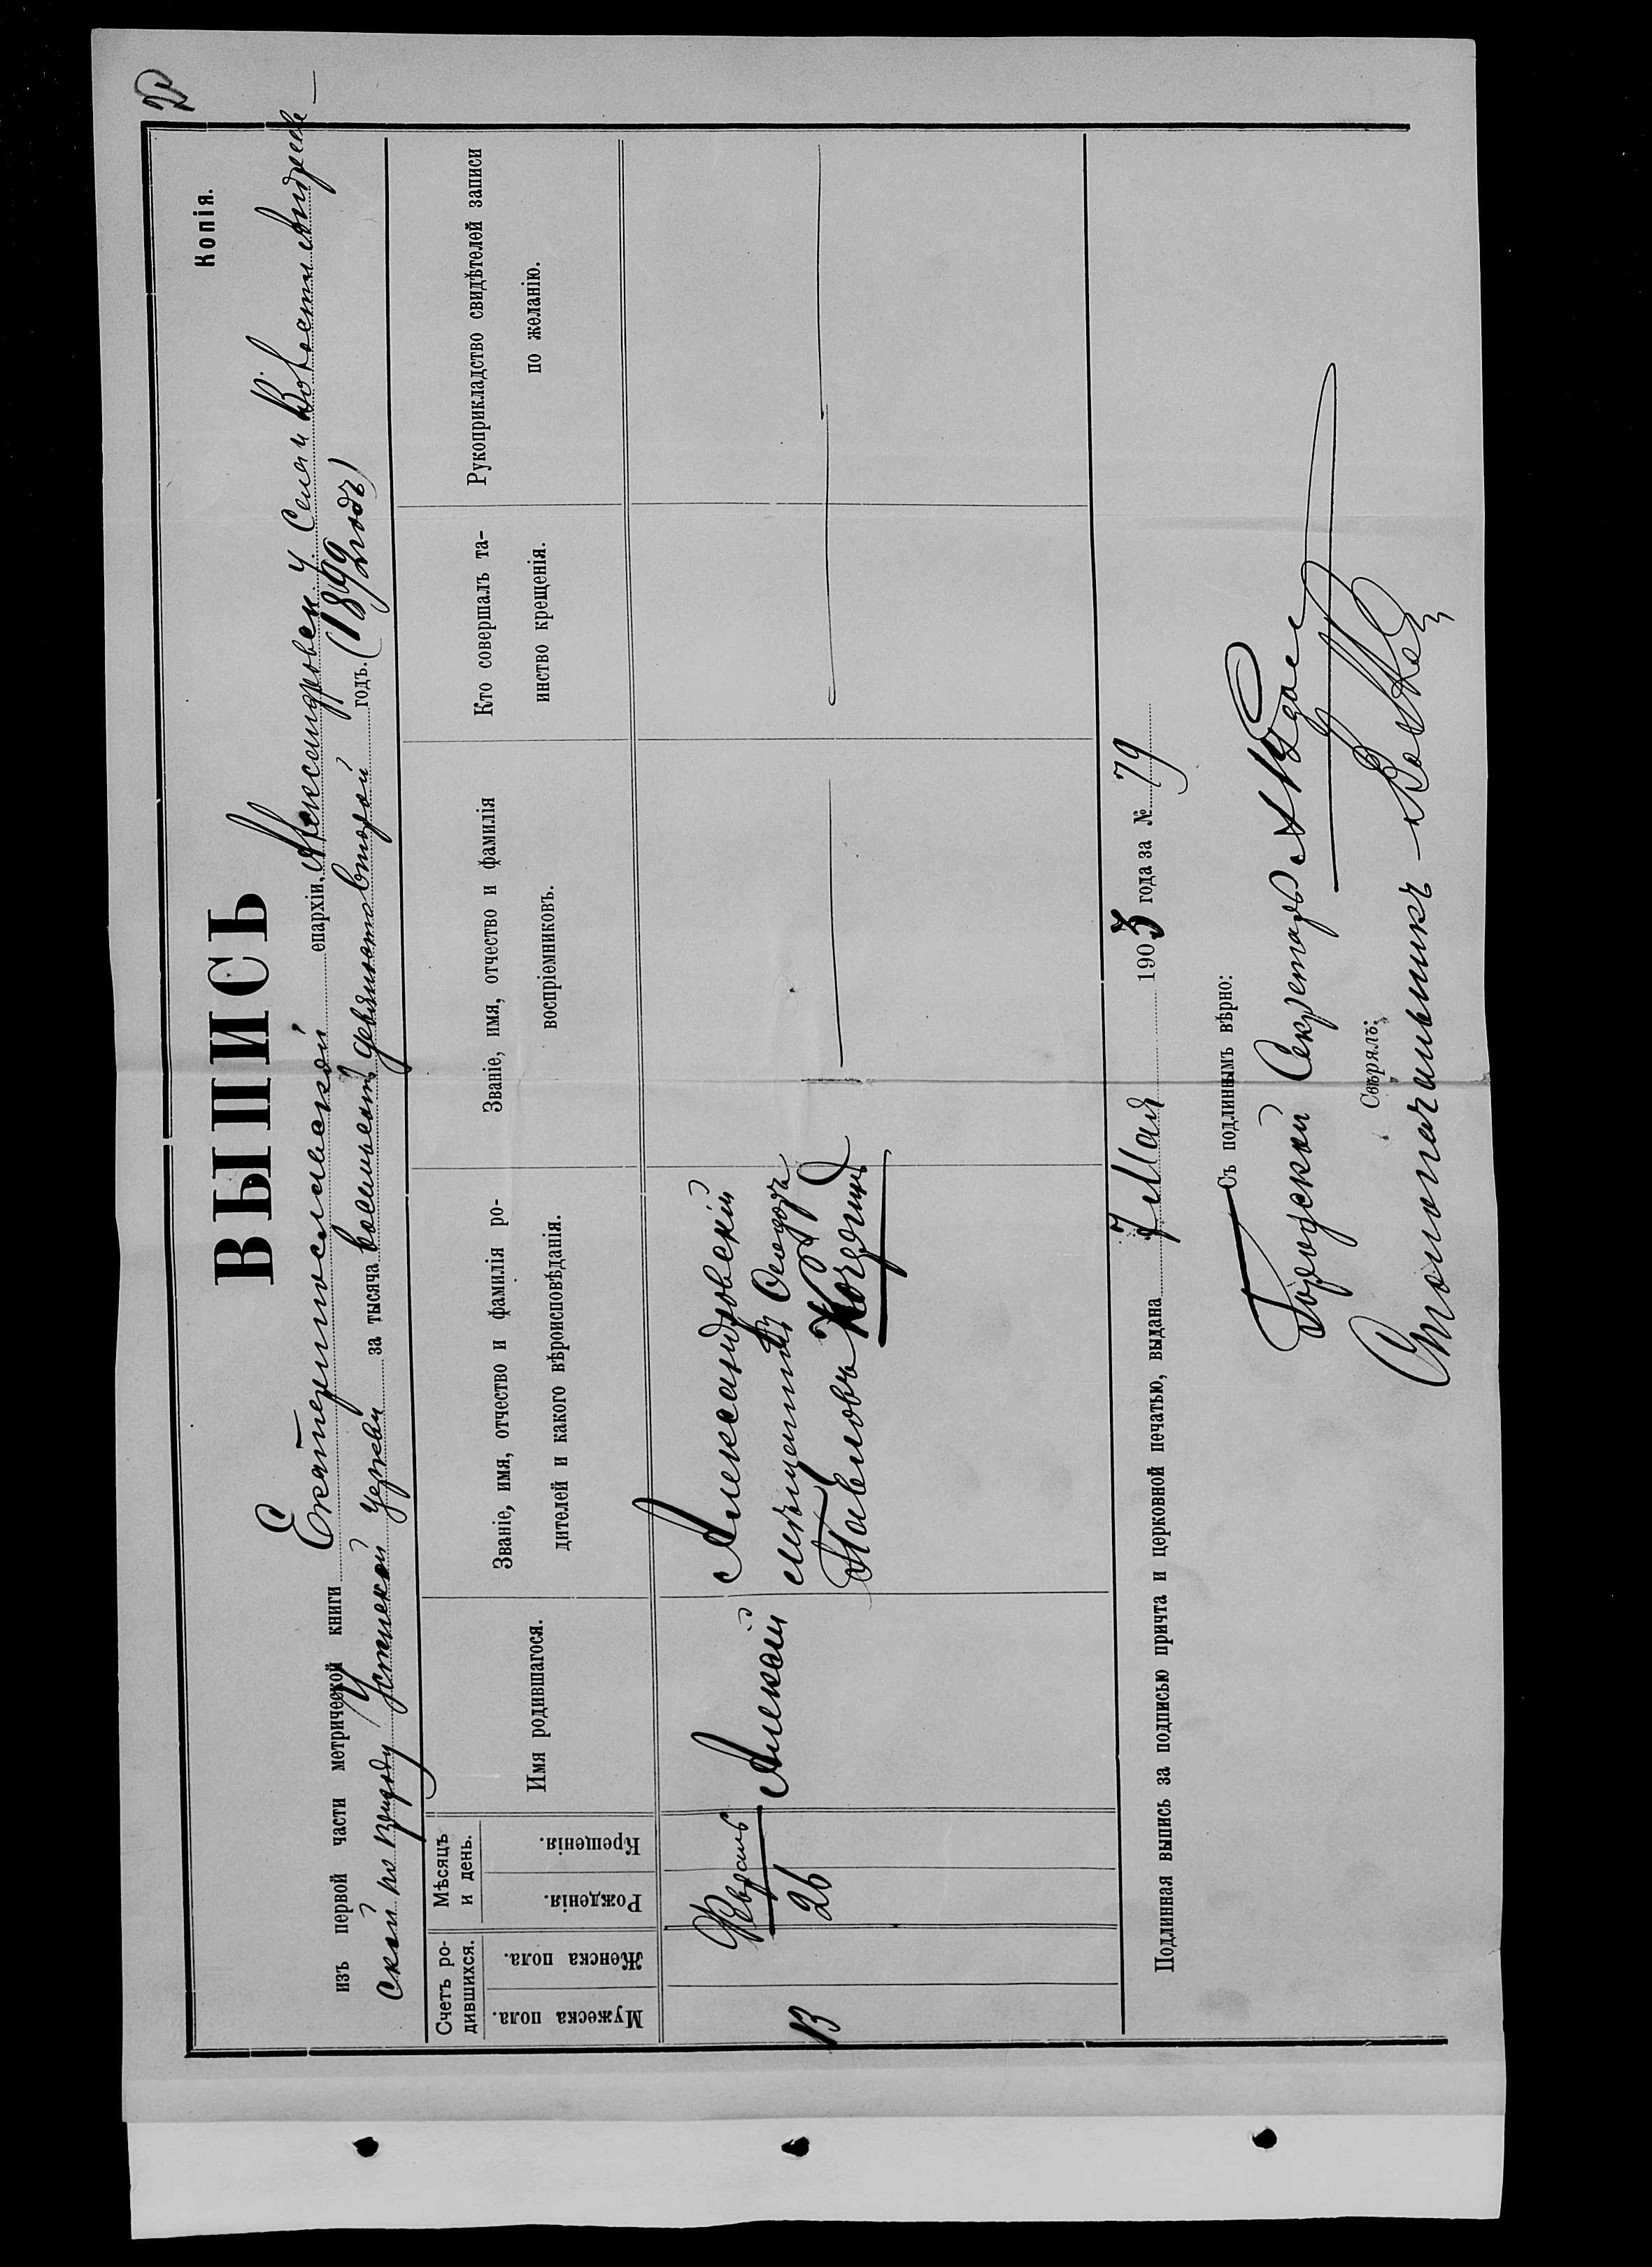 Копія.
ВЫПИСЬ
изъ первой части метрической книги Екатеринославской епархіи, Александровск. у. Села Ново
ской церкви за тысяча восемьсотъ девяносто второй годъ. (1892 годъ)
Счетъ ро-
дившихся.
Мужеска пола.
Женска пола.
Мѣсяцъ
и день.
Рожденія.
Крещенія.
Имя родившагося.
Званіе, имя, отчество и фамилія ро-
дителей и какого вѣроисповѣданія.
Званіе, имя, отчество и фамилія
воспріемниковъ.
Кто совершалъ та-
инство крещенія.
Рукоприкладство свидѣтелей записи
по желанію.
13
Февраль
26
Алексій
Александровскій
мѣщанинъ Ѳеодоръ
Павловъ
Подлинная выпись за подписью причта и церковной печатью, выдана 7 Мая 1903 года за № 79
Съ подлиннымъ вѣрно:
Городской Секретарь
Свѣрялъ:
Столоначальникъ